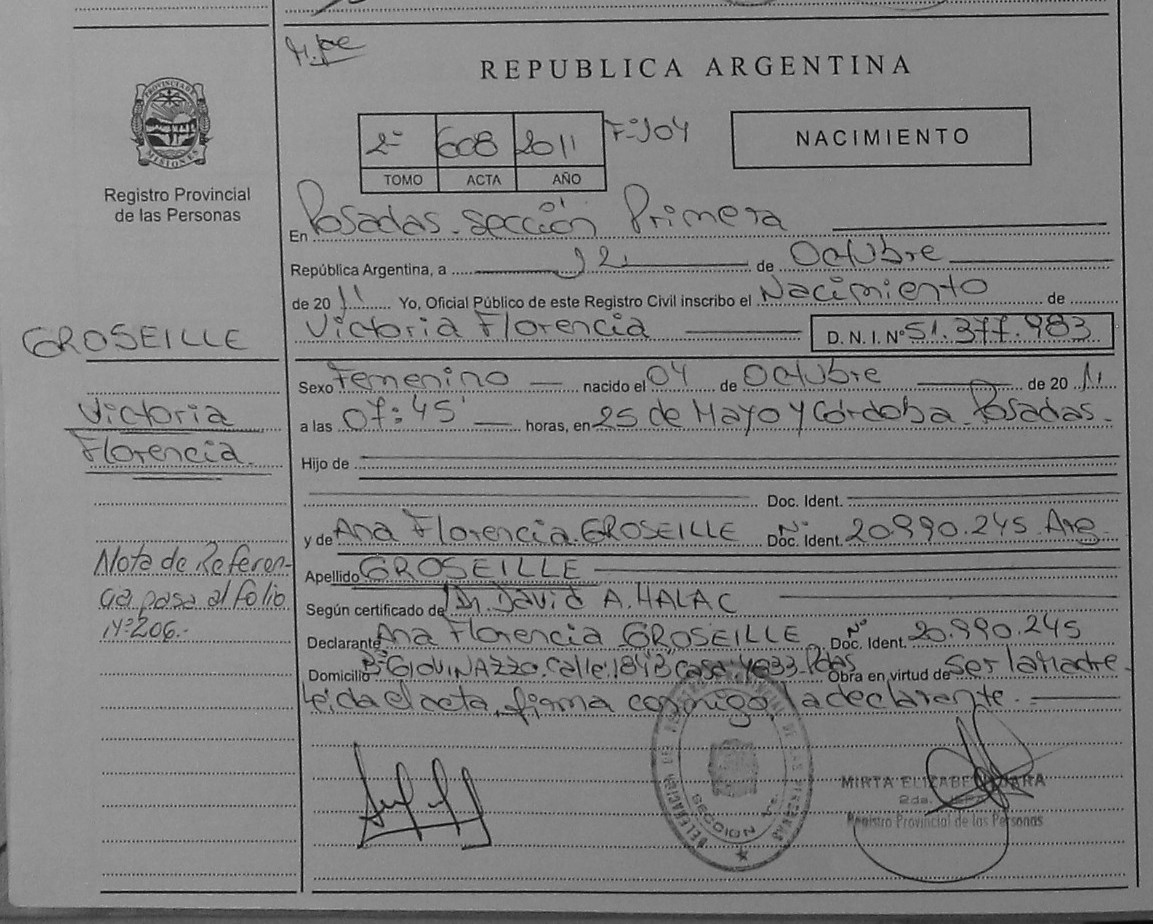 REPUBLICA ARGENTINA
PROVINCIA DE MISIONES
Registro Provincial
de las Personas
2º 608 2011 Fº 104
TOMO ACTA AÑO
NACIMIENTO
En Posadas. Sección 01 Primera
República Argentina, a 12 de Octubre
de 2011 Yo, Oficial Público de este Registro Civil inscribo el Nacimiento de
Victoria Florencia D. N. I. Nº 51.377.983
GROSEILLE
Victoria
Florencia.
Sexo Femenino nacido el 04 de Octubre de 2011
a las 07:45' horas, en 25 de Mayo y Córdoba. Posadas.
Hijo de
Doc. Ident.
y de Ana Florencia GROSEILLE Doc. Ident. Nº 20.990.245 Arg.
Apellido GROSEILLE
Nota de Referen-
cia pasa al folio
Nº 206.-
Según certificado de Dr. David A. HALAC
Declarante Ana Florencia GROSEILLE Doc. Ident. Nº 20.990.245
Domicilio Bº GIOVINAZZO. Calle: 184B Casa: 4833. Pdas Obra en virtud de Ser la Madre
Leída el acta, firma conmigo, la declarante.-
DELEGACION DEL REGISTRO PROVINCIAL DE LAS PERSONAS
SECCION 1ra.
MIRTA ELIZABETH JARA
2da.
Registro Provincial de las Personas